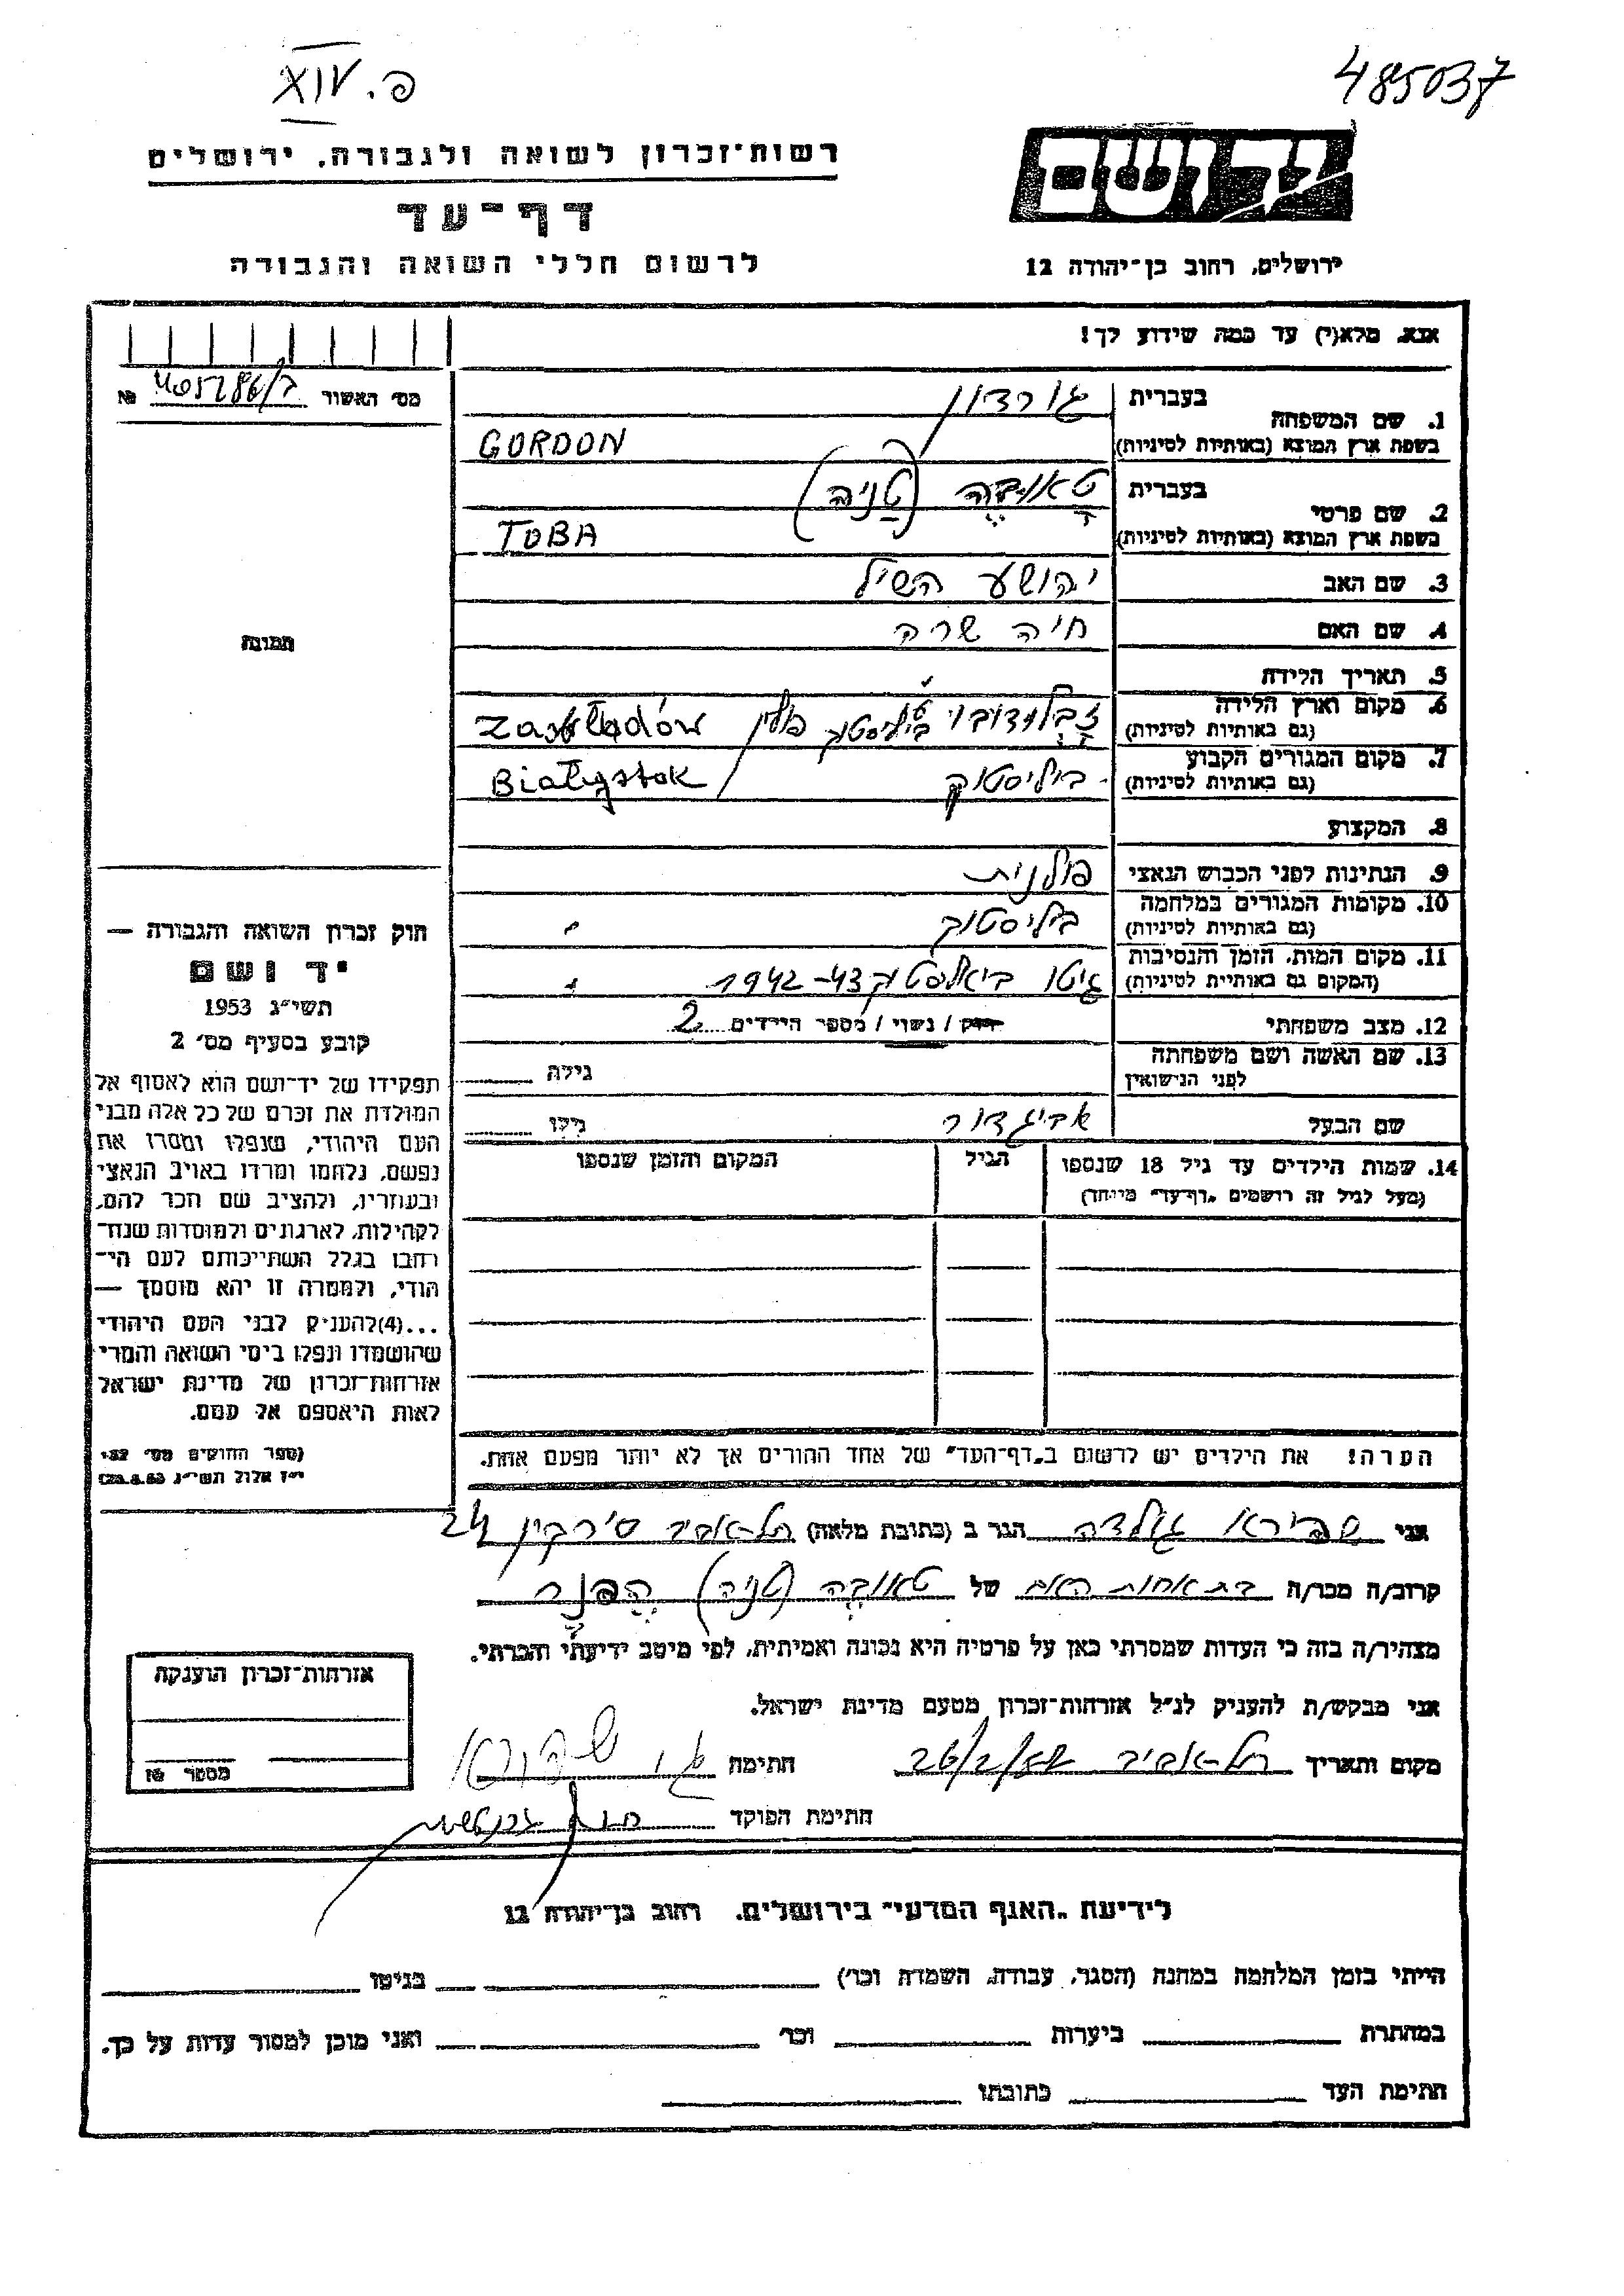 פ. XIV
485037
רשות־זכרון לשואה ולגבורה, ירושלים
דף־עד
לרשום חללי השואה והגבורה
ידושם
ירושלים, רחוב בן־יהודה 12
אנא, מלא(י) עד כמה שידוע לך!
מס׳ האשור № 405286/ב
בעברית גורדון
1. שם המשפחה
בשפת ארץ המוצא (באותיות לטיניות) GORDON
בעברית טאובה (טניה)
2. שם פרטי
בשפת ארץ המוצא (באותיות לטיניות) TOBA
3. שם האב יהושע השיל
4. שם האם חיה שרה
תמונה
5. תאריך הלידה
6. מקום וארץ הלידה
(גם באותיות לטיניות) זבלודובו ביליסטוק פולין
7. מקום המגורים הקבוע
(גם באותיות לטיניות) ביליסטוק Białystok
8. המקצוע
9. הנתינות לפני הכבוש הנאצי פולנית
10. מקומות המגורים במלחמה
(גם באותיות לטיניות) ביליסטוק "
11. מקום המות, הזמן והנסיבות
(המקום גם באותיות לטיניות) גיטו ביאליסטוק 1942-43 "
12. מצב משפחתי רווק / נשוי / מספר הילדים 2
13. שם האשה ושם משפחתה
לפני הנישואין גילה
שם הבעל אביגדור גילו
14. שמות הילדים עד גיל 18 שנספו הגיל המקום והזמן שנספו
(מעל לגיל זה רושמים „דף־עד״ מיוחד)
חוק זכרון השואה והגבורה —
יד ושם
תשי״ג 1953
קובע בסעיף מס׳ 2
תפקידו של יד־ושם הוא לאסוף אל
המולדת את זכרם של כל אלה מבני
העם היהודי, שנפלו ומסרו את
נפשם, נלחמו ומרדו באויב הנאצי
ובעוזריו, ולהציב שם וזכר להם,
לקהילות, לארגונים ולמוסדות שנח־
רבו בגלל השתייכותם לעם הי־
הודי, ולמטרה זו יהא מוסמך —
...(4)להעניק לבני העם היהודי
שהושמדו ונפלו בימי השואה והמרי
אזרחות־זכרון של מדינת ישראל
לאות היאספם אל עמם.
(ספר החוקים מס׳ 132
י״ז אלול תשי״ג 28.8.53)
הערה! את הילדים יש לרשום ב„דף־העד״ של אחד ההורים אך לא יותר מפעם אחת.
אני שפירא גולדה הגר ב (כתובת מלאה) תל־אביב סירקין 24
קרוב/ה מכר/ה בת אחות האם של טאובה (טניה) הפנר
מצהיר/ה בזה כי העדות שמסרתי כאן על פרטיה היא נכונה ואמיתית, לפי מיטב ידיעתי והכרתי.
אני מבקש/ת להעניק לנ״ל אזרחות־זכרון מטעם מדינת ישראל.
מקום ותאריך תל־אביב חתימה ג. שפירא
חתימת הפוקד
אזרחות־זכרון הוענקה
מספר №
לידיעת „האגף המדעי״ בירושלים, רחוב בן־יהודה 12
הייתי בזמן המלחמה במחנה (הסגר, עבודה, השמדה וכו׳) בגיטו
במחתרת ביערות וכו׳ ואני מוכן למסור עדות על כך.
חתימת העד כתובתו